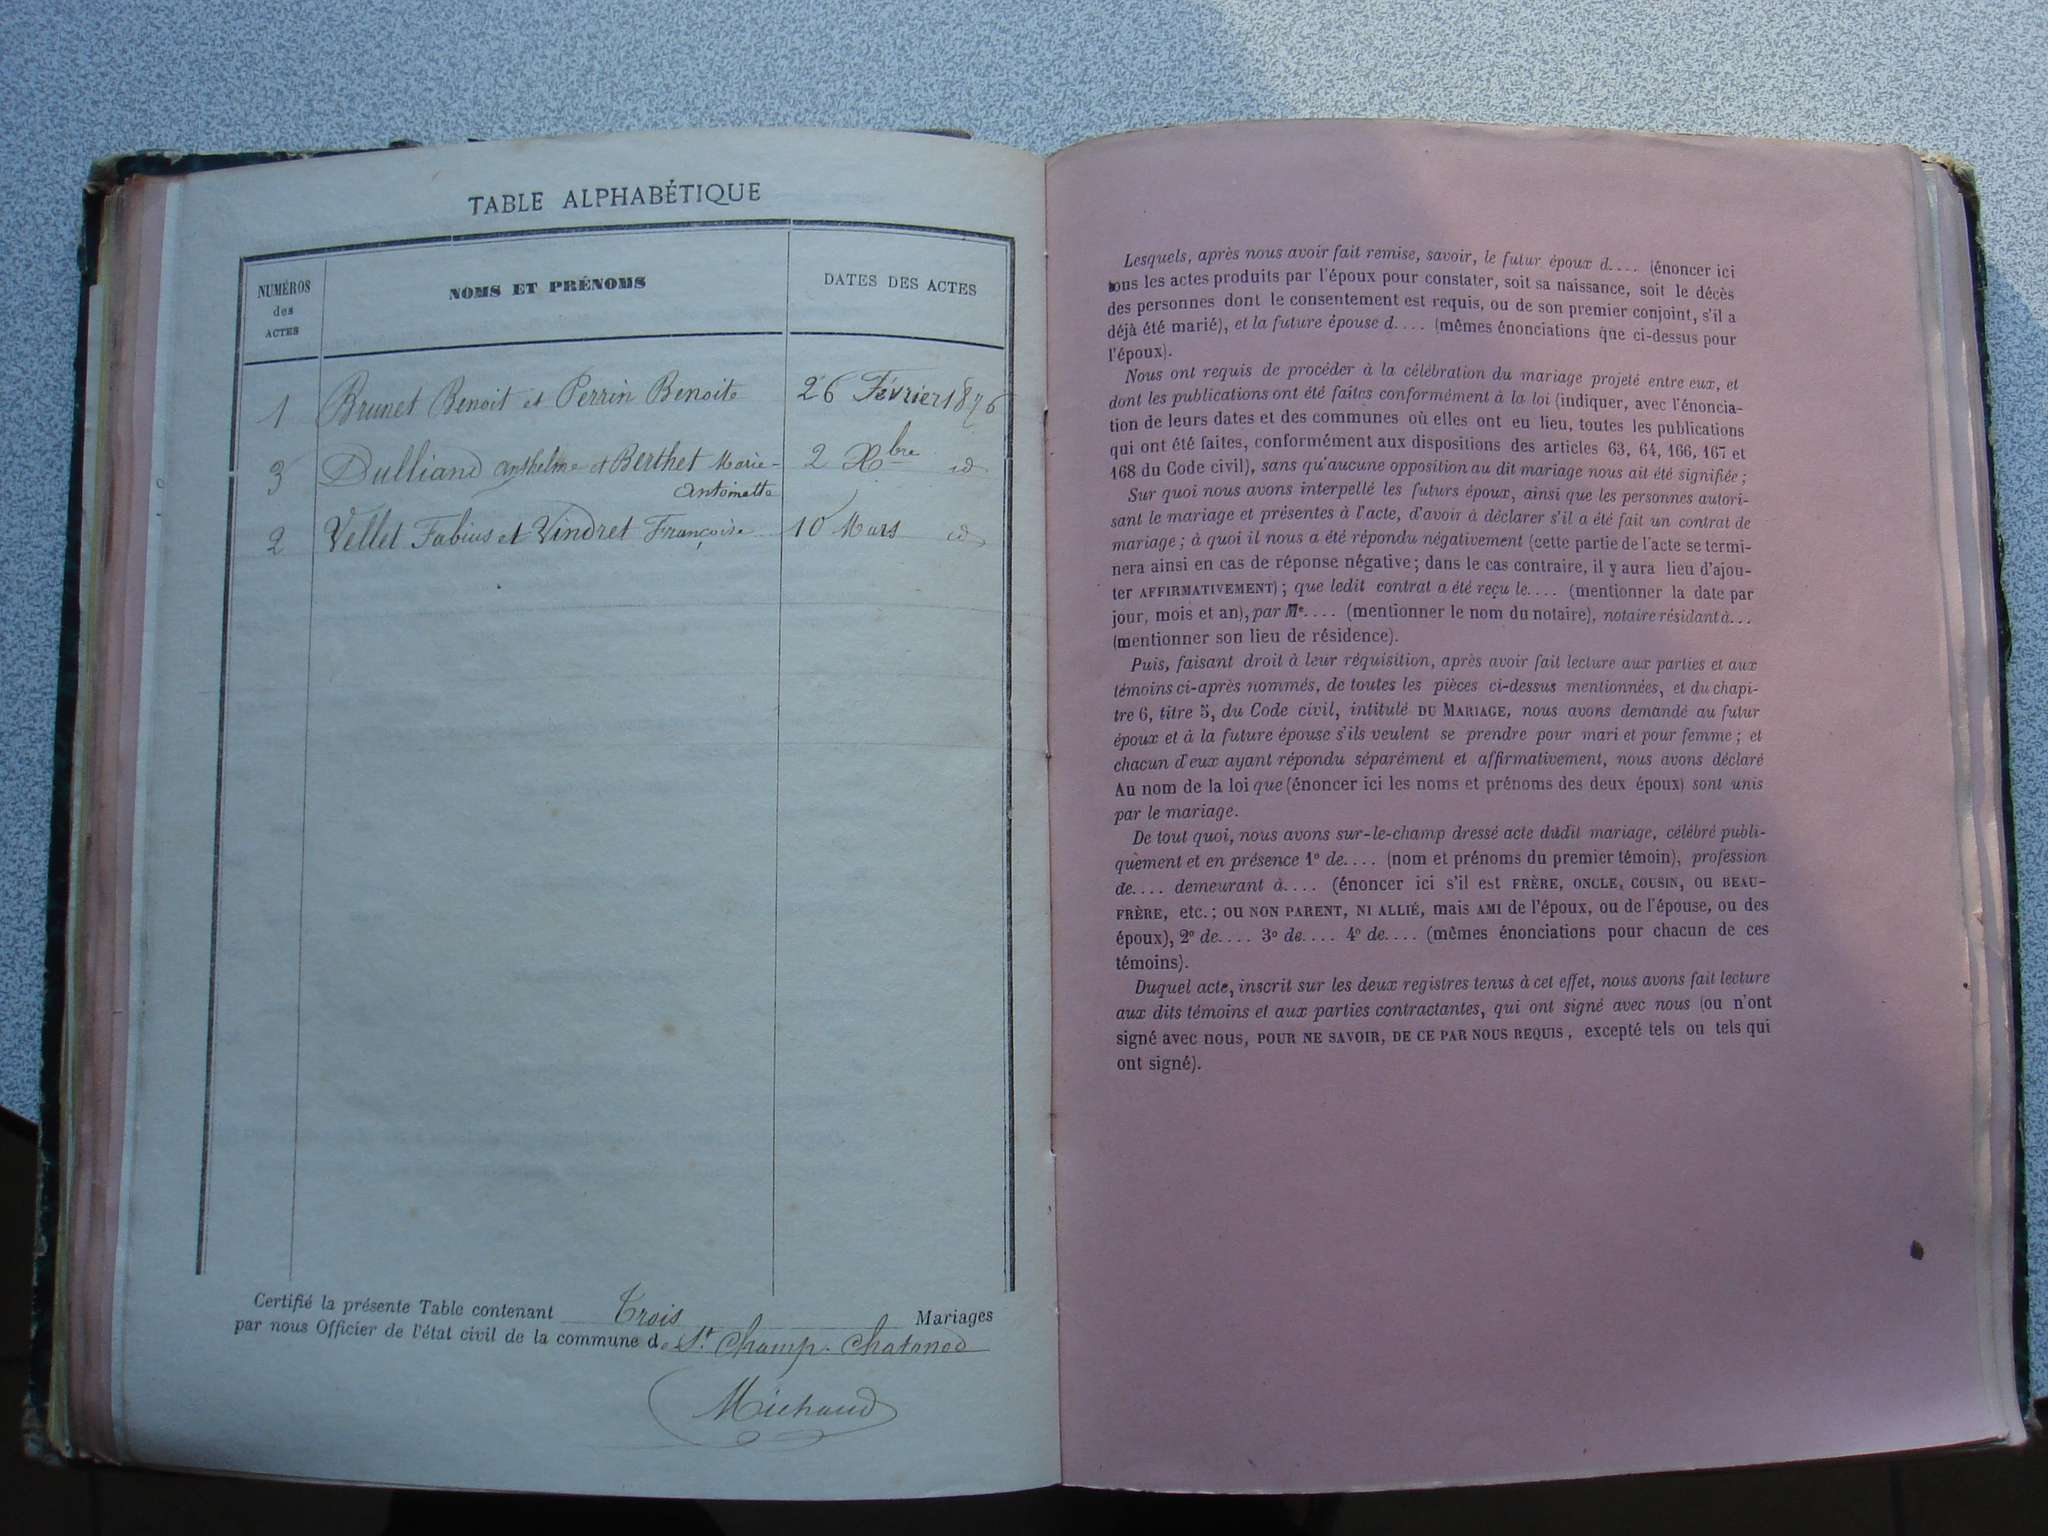 TABLE ALPHABÉTIQUE
NUMÉROS
des
ACTES
NOMS ET PRÉNOMS
DATES DES ACTES
1 Brunet Benoit et Perrin Benoite 26 Février 1876
3 Dulliand Anthelme et Berthet Marie- 2 Xbre id
Antoinette
2 Vellet Fabius et Vindret Françoise 10 Mars id
Certifié la présente Table contenant Trois Mariages
par nous Officier de l'état civil de la commune de St. Champ. Chatonod
Michaud
Lesquels, après nous avoir fait remise, savoir, le futur époux d.... (énoncer ici
tous les actes produits par l'époux pour constater, soit sa naissance, soit le décès
des personnes dont le consentement est requis, ou de son premier conjoint, s'il a
déjà été marié), et la future épouse d.... (mêmes énonciations que ci-dessus pour
l'époux).
Nous ont requis de procéder à la célébration du mariage projeté entre eux, et
dont les publications ont été faites conformément à la loi (indiquer, avec l'énoncia-
tion de leurs dates et des communes où elles ont eu lieu, toutes les publications
qui ont été faites, conformément aux dispositions des articles 63, 64, 166, 167 et
168 du Code civil), sans qu'aucune opposition au dit mariage nous ait été signifiée ;
Sur quoi nous avons interpellé les futurs époux, ainsi que les personnes autori-
sant le mariage et présentes à l'acte, d'avoir à déclarer s'il a été fait un contrat de
mariage ; à quoi il nous a été répondu négativement (cette partie de l'acte se termi-
nera ainsi en cas de réponse négative ; dans le cas contraire, il y aura lieu d'ajou-
ter AFFIRMATIVEMENT) ; que ledit contrat a été reçu le.... (mentionner la date par
jour, mois et an), par Me.... (mentionner le nom du notaire), notaire résidant à...
(mentionner son lieu de résidence).
Puis, faisant droit à leur réquisition, après avoir fait lecture aux parties et aux
témoins ci-après nommés, de toutes les pièces ci-dessus mentionnées, et du chapi-
tre 6, titre 5, du Code civil, intitulé DU MARIAGE, nous avons demandé au futur
époux et à la future épouse s'ils veulent se prendre pour mari et pour femme ; et
chacun d'eux ayant répondu séparément et affirmativement, nous avons déclaré
Au nom de la loi que (énoncer ici les noms et prénoms des deux époux) sont unis
par le mariage.
De tout quoi, nous avons sur-le-champ dressé acte dudit mariage, célébré publi-
quement et en présence 1° de.... (nom et prénoms du premier témoin), profession
de.... demeurant à.... (énoncer ici s'il est FRÈRE, ONCLE, COUSIN, ou BEAU-
FRÈRE, etc. ; ou NON PARENT, NI ALLIÉ, mais AMI de l'époux, ou de l'épouse, ou des
époux), 2° de.... 3° de.... 4° de.... (mêmes énonciations pour chacun de ces
témoins).
Duquel acte, inscrit sur les deux registres tenus à cet effet, nous avons fait lecture
aux dits témoins et aux parties contractantes, qui ont signé avec nous (ou n'ont
signé avec nous, POUR NE SAVOIR, DE CE PAR NOUS REQUIS, excepté tels ou tels qui
ont signé).